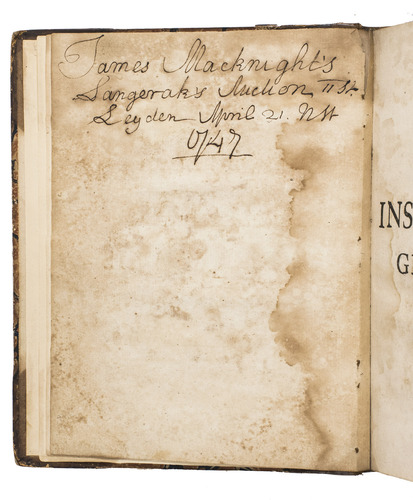 James Macknight's
Langeraks Auction II St.
Leyden April 21. NSt
1747
INS
G